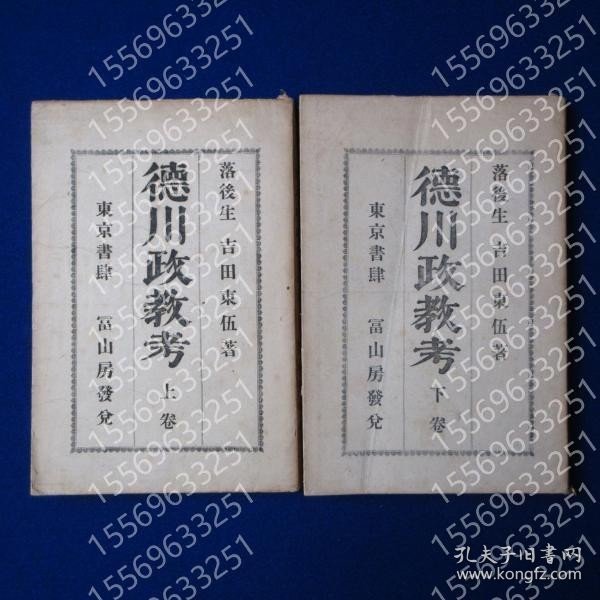 落後生 吉田東伍著
德川政教考 上卷
東京書肆 冨山房發兌
落後生 吉田東伍著
德川政教考 下卷
東京書肆 冨山房發兌
15569633251
孔夫子旧書网
www.kongfz.com